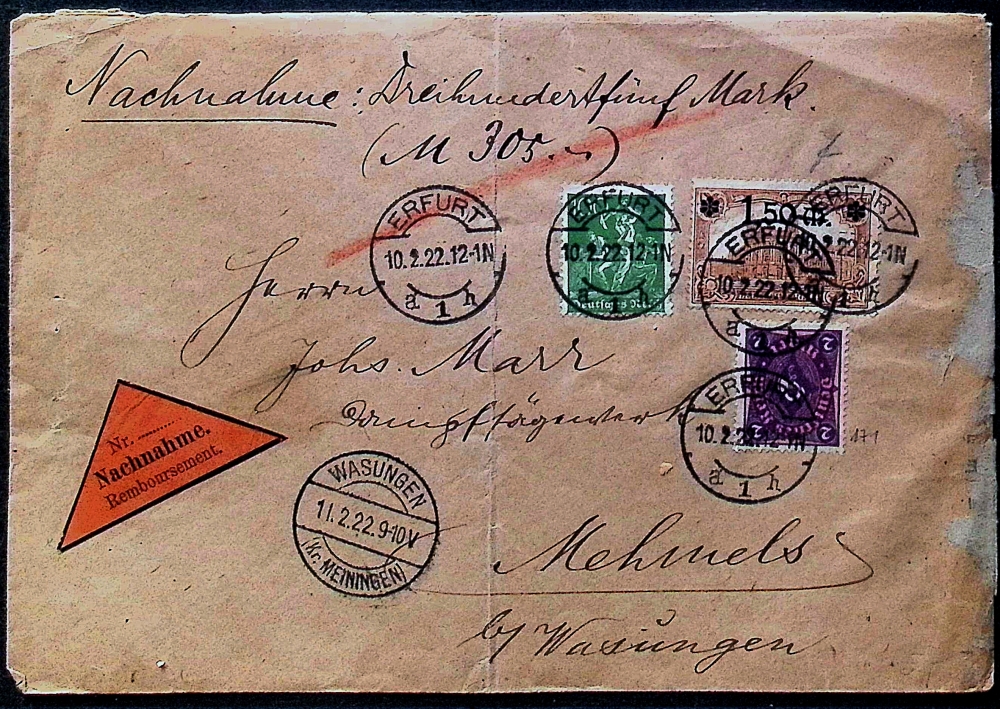 Nachnahme: Dreihundertfünf Mark.
(M 305.-)
ERFURT
10.2.22.12-1N
a 1 h
ERFURT
10.2.22.12-1N
a 1 h
Deutsches Reich
1,50 M.
ERFURT
10.2.22.12-1N
a 1 h
ERFURT
10.2.22.12-1N
h
Herrn
Johs. Marr
Dampfsägewerk
2 2
2 2
ERFURT
10.2.22.12-1N
a 1 h
171
Nr. ..........
Nachnahme.
Remboursement.
WASUNGEN
11.2.22.9-10V
(Kr. MEININGEN)
Mehmels
b/ Wasungen